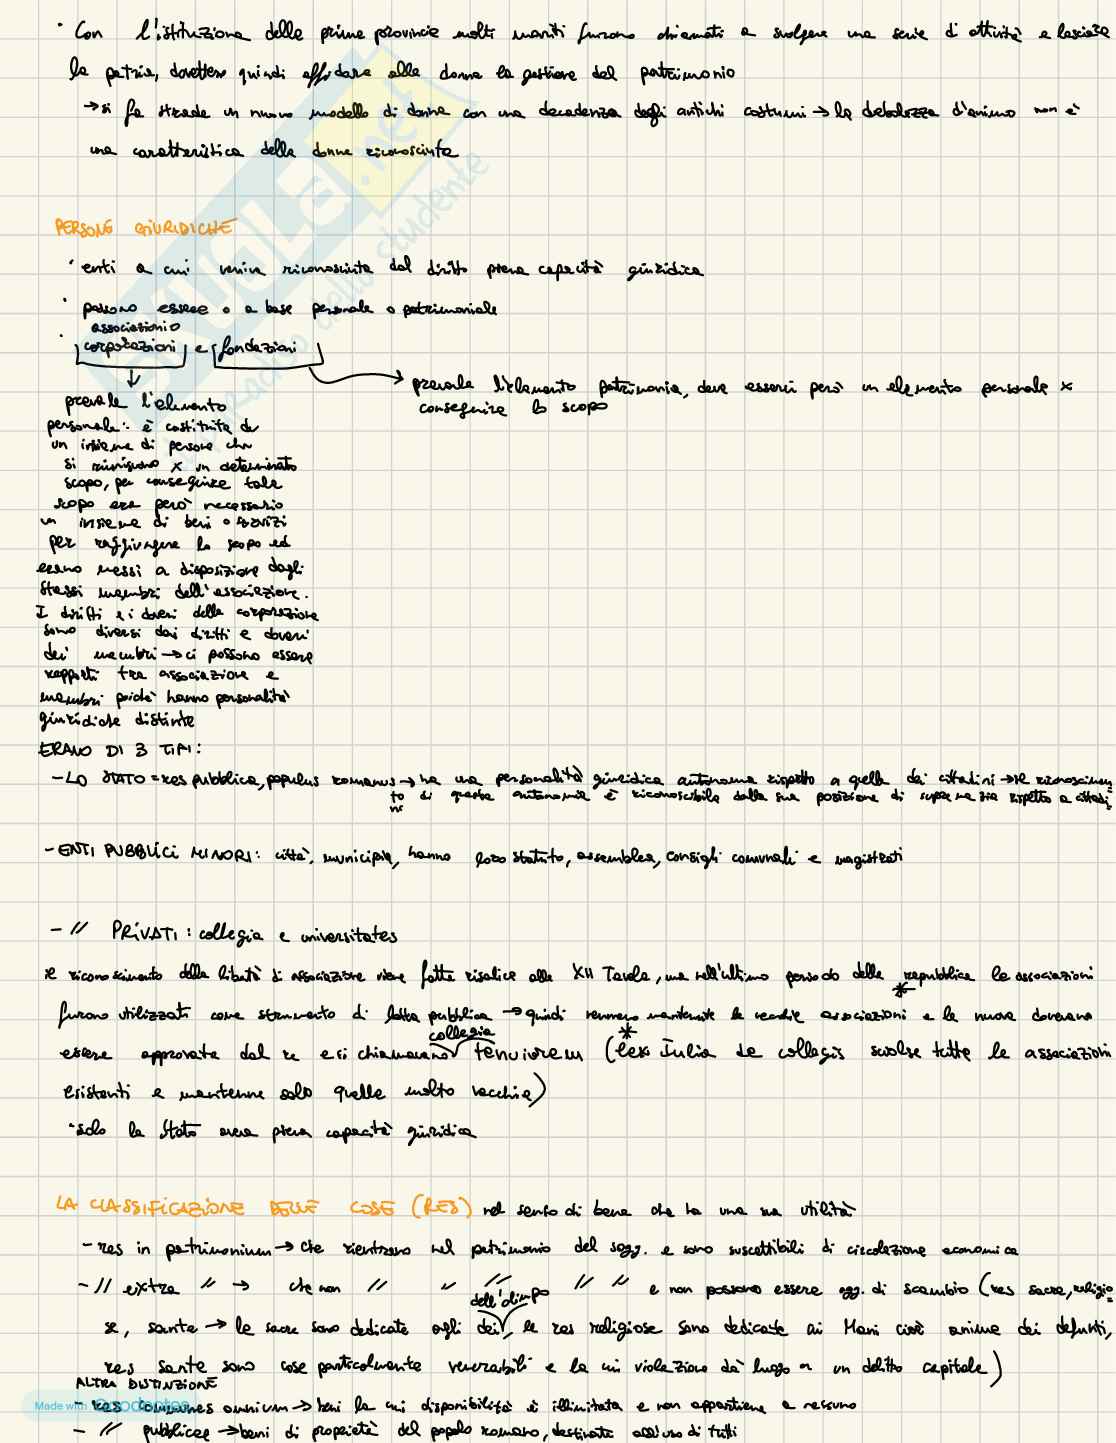 · Con l'istituzione delle prime provincie molti mariti furono chiamati a svolgere una serie di attività e lasciare
la patria, dovettero quindi affidare alle donne la gestione del patrimonio
→ si fa strada un nuovo modello di donna con una decadenza degli antichi costumi → la debolezza d'animo non è
una caratteristica della donna riconosciuta
PERSONE GIURIDICHE
· enti a cui veniva riconosciuta dal diritto piena capacità giuridica
· possono essere o a base personale o patrimoniale
associazioni o
· corporazioni e fondazioni
prevale l'elemento patrimonio, deve esserci però un elemento personale x
conseguire lo scopo
prevale l'elemento
personale: è costituita da
un insieme di persone che
si riuniscono x un determinato
scopo, per conseguire tale
scopo era però necessario
un insieme di beni o servizi
per raggiungere lo scopo ed
erano messi a disposizione dagli
stessi membri dell'associazione.
I diritti e i doveri della corporazione
sono diversi dai diritti e doveri
dei membri → ci possono essere
rapporti tra associazione e
membri poiché hanno personalità
giuridiche distinte
ERANO DI 3 TIPI:
- LO STATO = res pubblica, populus romanus → ha una personalità giuridica autonoma rispetto a quella dei cittadini → il riconoscimen
to di questa autonomia è riconoscibile dalla sua posizione di supremazia rispetto a cittadi
ni
- ENTI PUBBLICI MINORI: città, municipia, hanno loro statuto, assemblea, consigli comunali e magistrati
- // PRIVATI: collegia e universitates
il riconoscimento della libertà di associazione viene fatta risalire alle XII Tavole, ma nell'ultimo periodo della repubblica le associazioni
furono utilizzati come strumento di lotta pubblica → quindi vennero mantenute le vecchie associazioni e le nuove dovevano
collegia
essere approvate dal re e si chiamavano tenuiorem (lex Iulia de collegis sciolse tutte le associazioni
esistenti e mantenne solo quelle molto vecchie)
· solo lo Stato aveva piena capacità giuridica
LA CLASSIFICAZIONE DELLE COSE (RES) nel senso di bene che ha una sua utilità
- res in patrimonium → che rientrano nel patrimonio del sogg. e sono suscettibili di circolazione economica
- // extra // → che non // // // // // e non possono essere ogg. di scambio (res sacre, religio
dell'olimpo
se, sante → le sacre sono dedicate agli dei, le res religiose sono dedicate ai Mani cioè anime dei defunti,
res sante sono cose particolarmente venerabili e la cui violazione dà luogo a un delitto capitale)
ALTRA DISTINZIONE
- res comunes omnium → beni la cui disponibilità è illimitata e non appartiene a nessuno
- // pubblicae → beni di proprietà del popolo romano, destinate all'uso di tutti
Made with Goodnotes